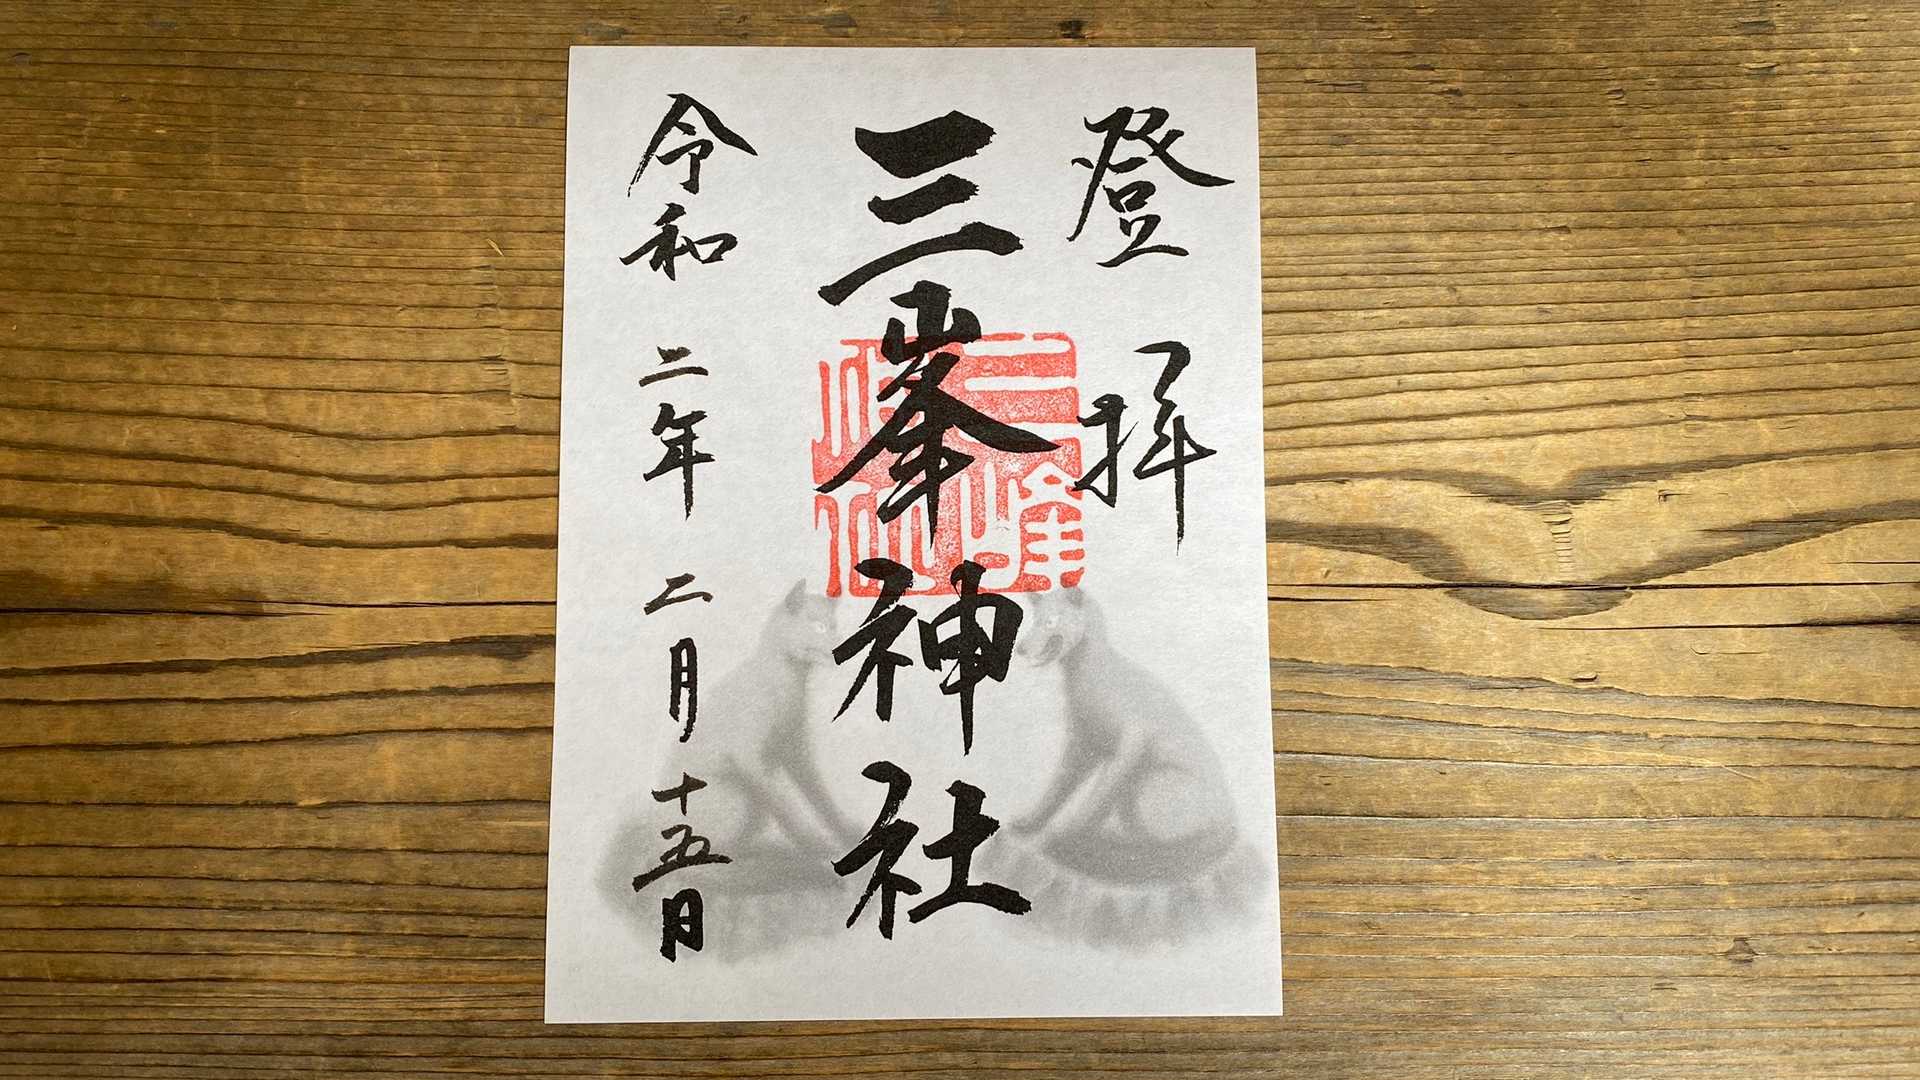 登拝
三峯神社
令和二年二月十五日